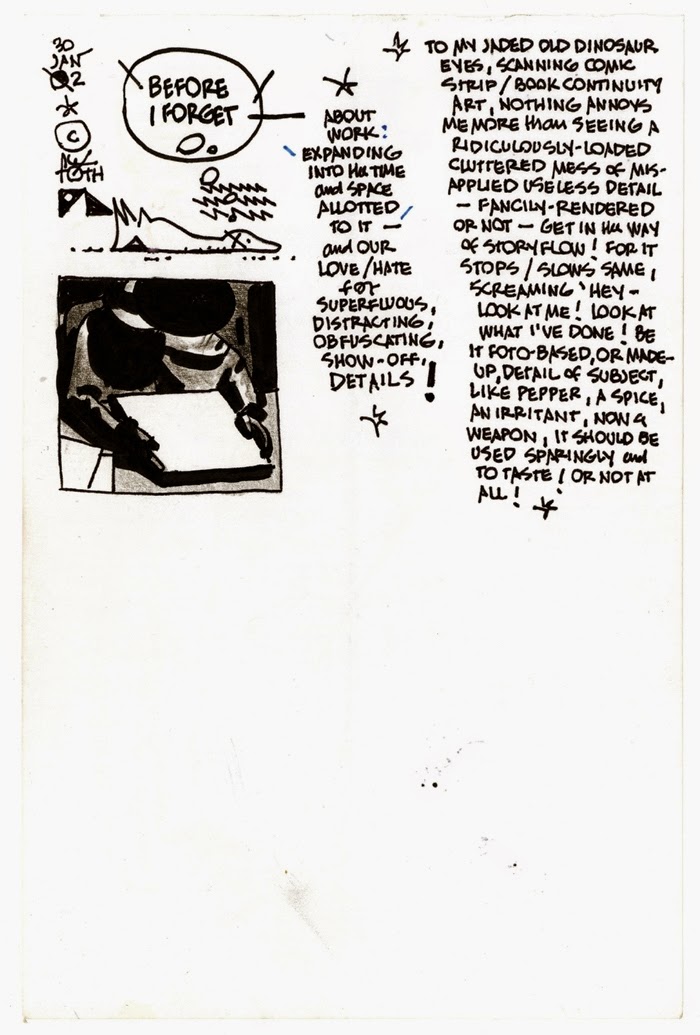 30
JAN
02
©
ALEX
TOTH
BEFORE
I FORGET
ABOUT
WORK:
EXPANDING
INTO the TIME
and SPACE
ALLOTTED
TO IT —
and OUR
LOVE/HATE
for
SUPERFLUOUS,
DISTRACTING,
OBFUSCATING,
SHOW-OFF,
DETAILS!
TO MY JADED OLD DINOSAUR
EYES, SCANNING COMIC
STRIP/BOOK CONTINUITY
ART, NOTHING ANNOYS
ME MORE than SEEING A
RIDICULOUSLY-LOADED
CLUTTERED MESS OF MIS-
APPLIED USELESS DETAIL
— FANCILY-RENDERED
OR NOT — GET IN the WAY
OF STORY FLOW! FOR IT
STOPS/SLOWS SAME,
SCREAMING 'HEY-
LOOK AT ME! LOOK AT
WHAT I'VE DONE! BE
IT FOTO-BASED, OR MADE-
UP, DETAIL of SUBJECT,
LIKE PEPPER, A SPICE,
AN IRRITANT, NOW A
WEAPON, IT SHOULD BE
USED SPARINGLY and
TO TASTE! OR NOT AT
ALL!